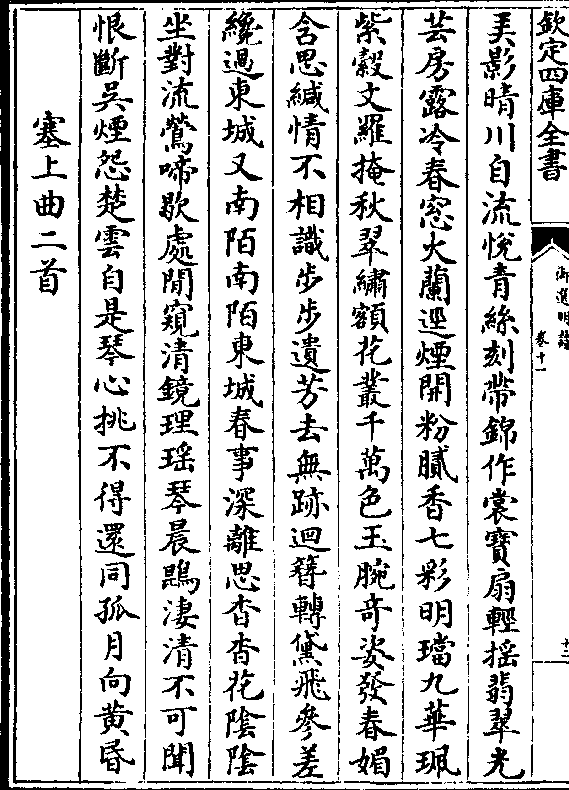 欽定四庫全書
御選明詩
卷十一
十三
美影晴川自流悅青絲刻帶錦作裳寶扇輕揺翡翠光
芸房露冷春窓火蘭逕煙開粉膩香七彩明璫九華珮
紫縠文羅掩秋翠繡額花叢千萬色玉腕奇姿發春媚
含思緘情不相識步步遺芳去無跡迴簪轉黛飛參差
纔過東城又南陌南陌東城春事深離思杳杳花陰陰
坐對流鶯啼歇處閒窺清鏡理瑶琴晨鵾淒清不可聞
恨斷吳煙怨楚雲自是琴心挑不得還同孤月向黄昏
塞上曲二首